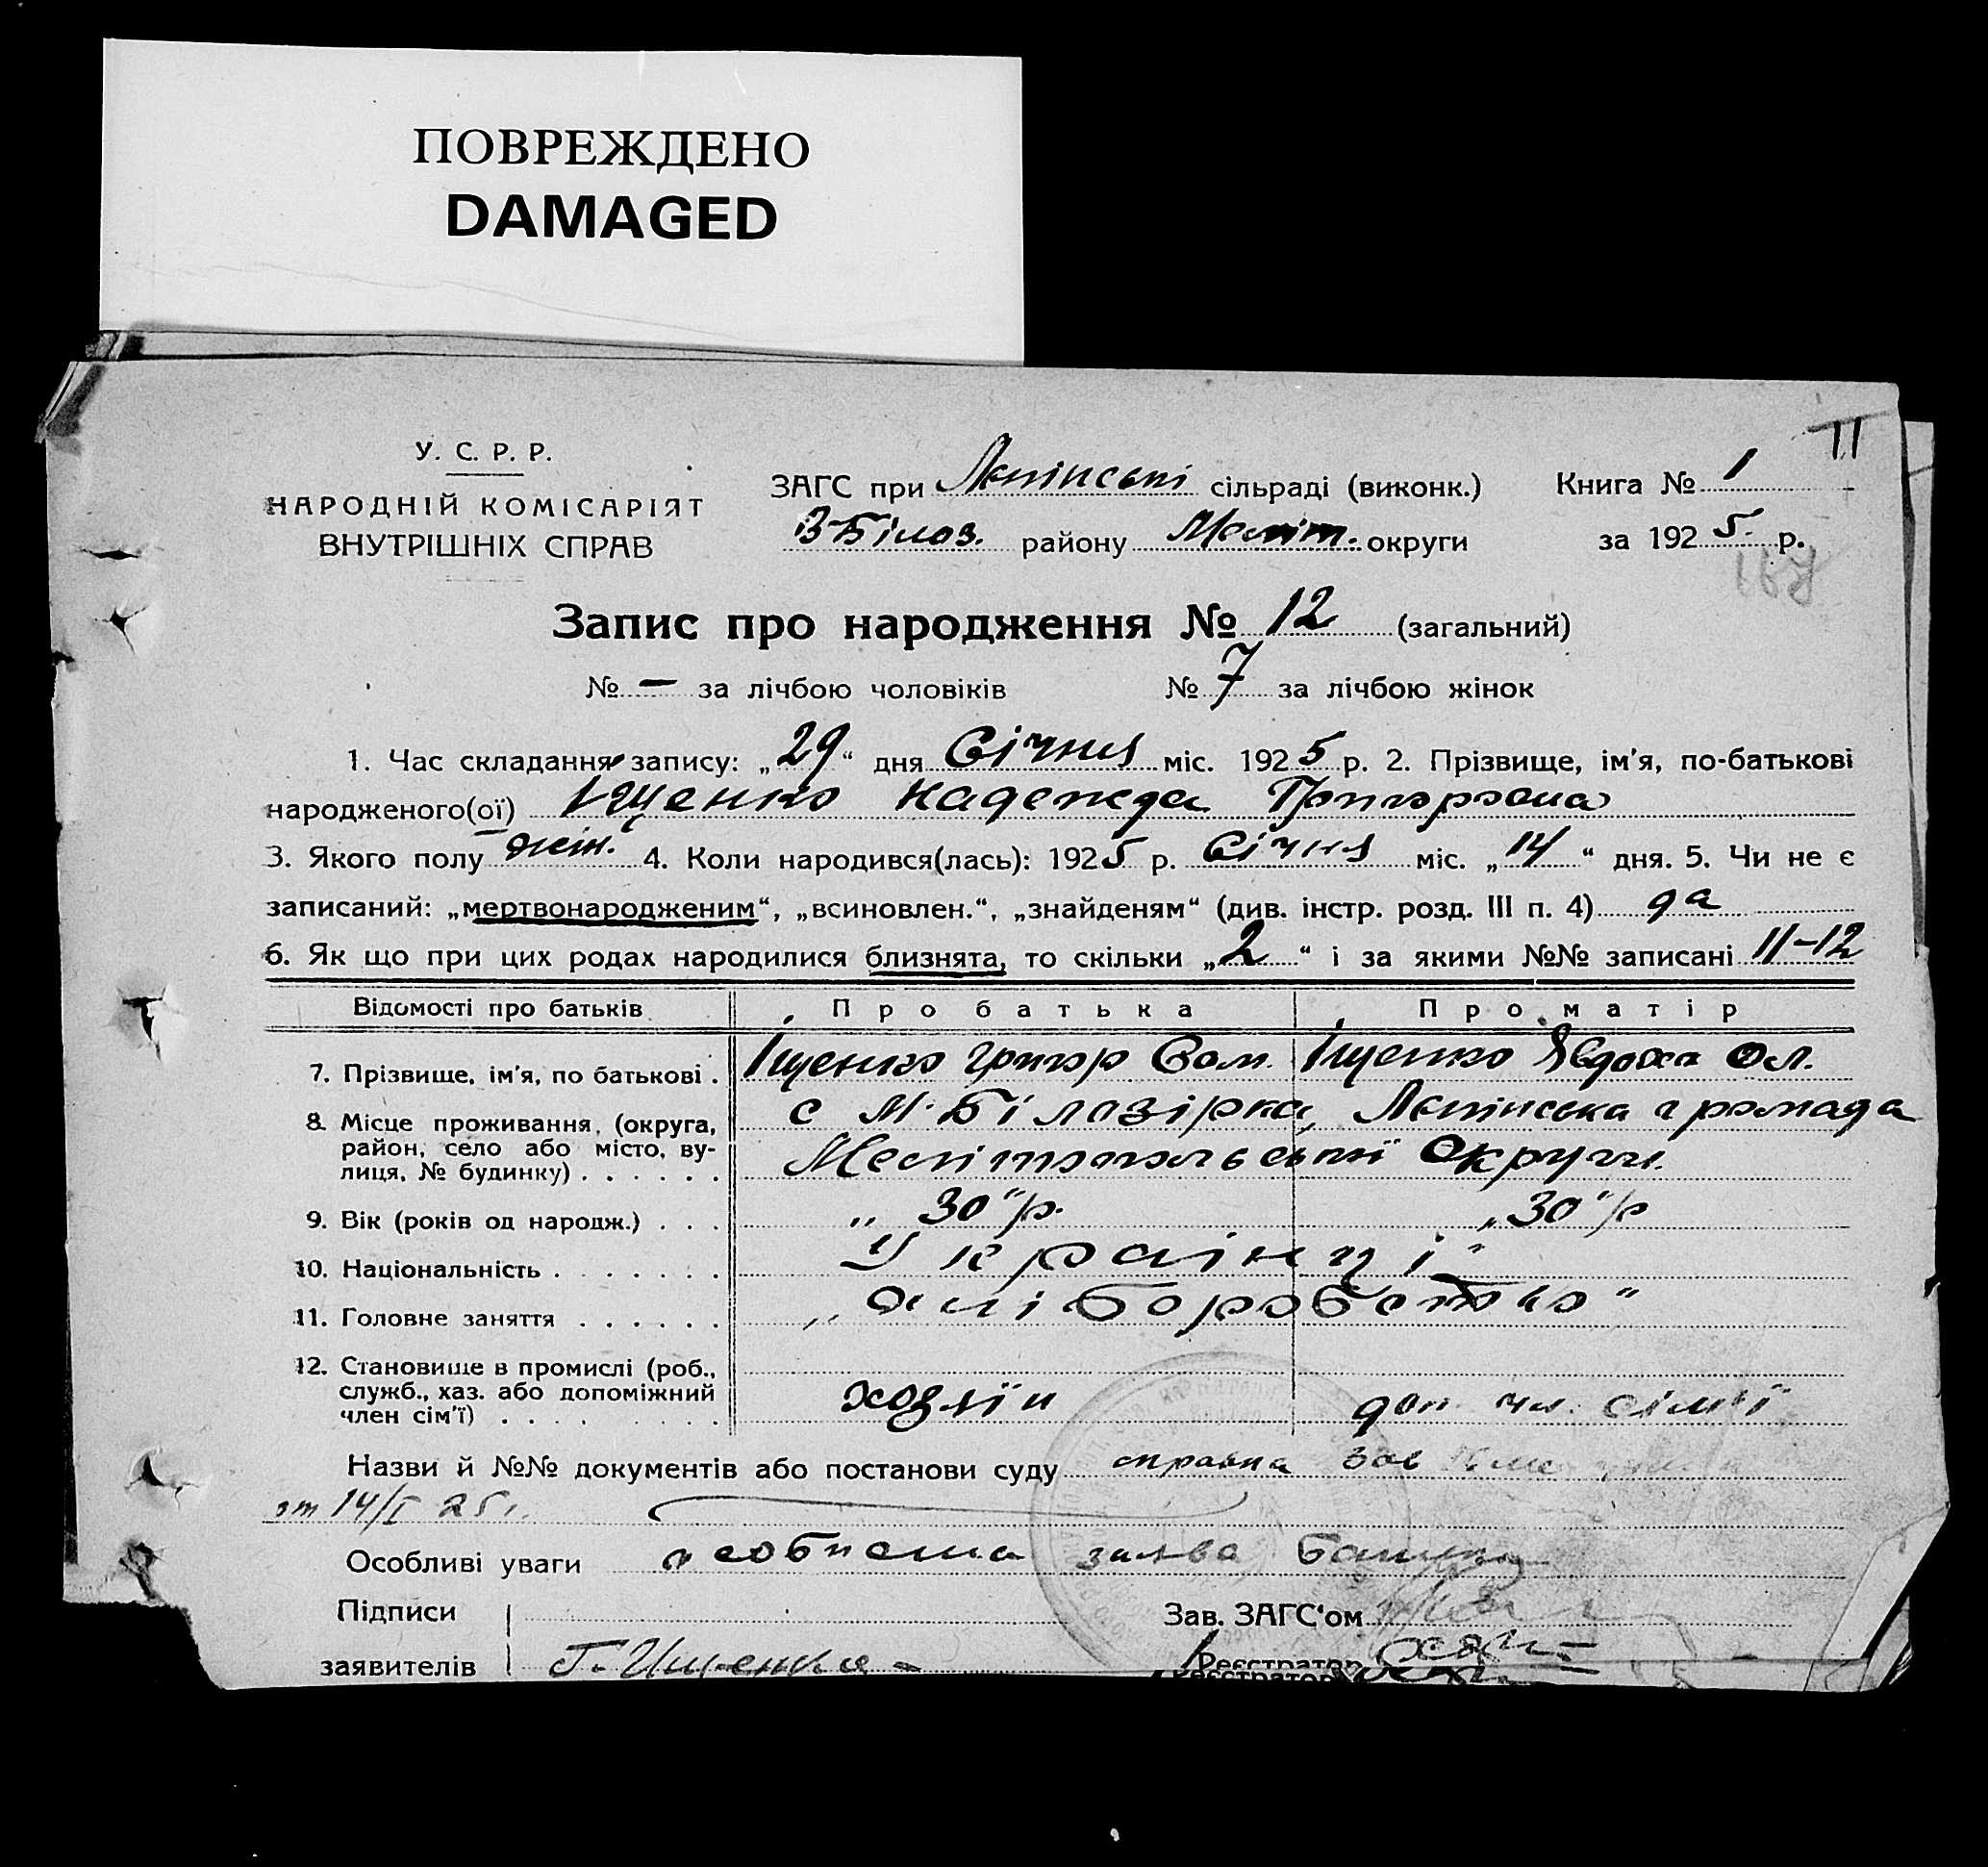 ПОВРЕЖДЕНО
DAMAGED
11
У. С. Р. Р.
НАРОДНІЙ КОМІСАРІЯТ
ВНУТРІШНІХ СПРАВ
ЗАГС при Лепінські сільраді (виконк.) Книга № 1
В-Білоз. району Меліт. округи за 1925. р.
Запис про народження № 12 (загальний)
№ — за лічбою чоловіків № 7 за лічбою жінок
1. Час складання запису: „29“ дня Січня міс. 1925 р. 2. Прізвище, ім'я, по-батькові
народженого(ої) Іщенко Надежда
3. Якого полу жін. 4. Коли народився(лась): 1925 р. Січня міс. „14“ дня. 5. Чи не є
записаний: „мертвонародженим“, „всиновлен.“, „знайденям“ (див. інстр. розд. III п. 4) да
6. Як що при цих родах народилися близнята, то скільки „2“ і за якими №№ записані 11-12
Відомості про батьків Про батька Про матір
7. Прізвище, ім'я, по батькові . Іщенко Григор Іщенко Явдоха Ол.
8. Місце проживання, (округа, район, село або місто, вулиця, № будинку) . . . . . . с М. Білозірка, Лепінська громада
Мелітопольської Округи.
9. Вік (років од народж.) . . . „30“ р. „30“ р
10. Національність . . . . . . . Українці"
11. Головне заняття . . . . . . „хліборобство"
12. Становище в промислі (роб., служб., хаз. або допоміжний член сім'ї) . . . . . . . . . хозяїн доп. чл. сімї
Назви й №№ документів або постанови суду справка зав
от 14/I 25 г.
Особливі уваги особиста заява батька
Підписи Зав. ЗАГС'ом
заявителів Г. Ищенко Реєстратор